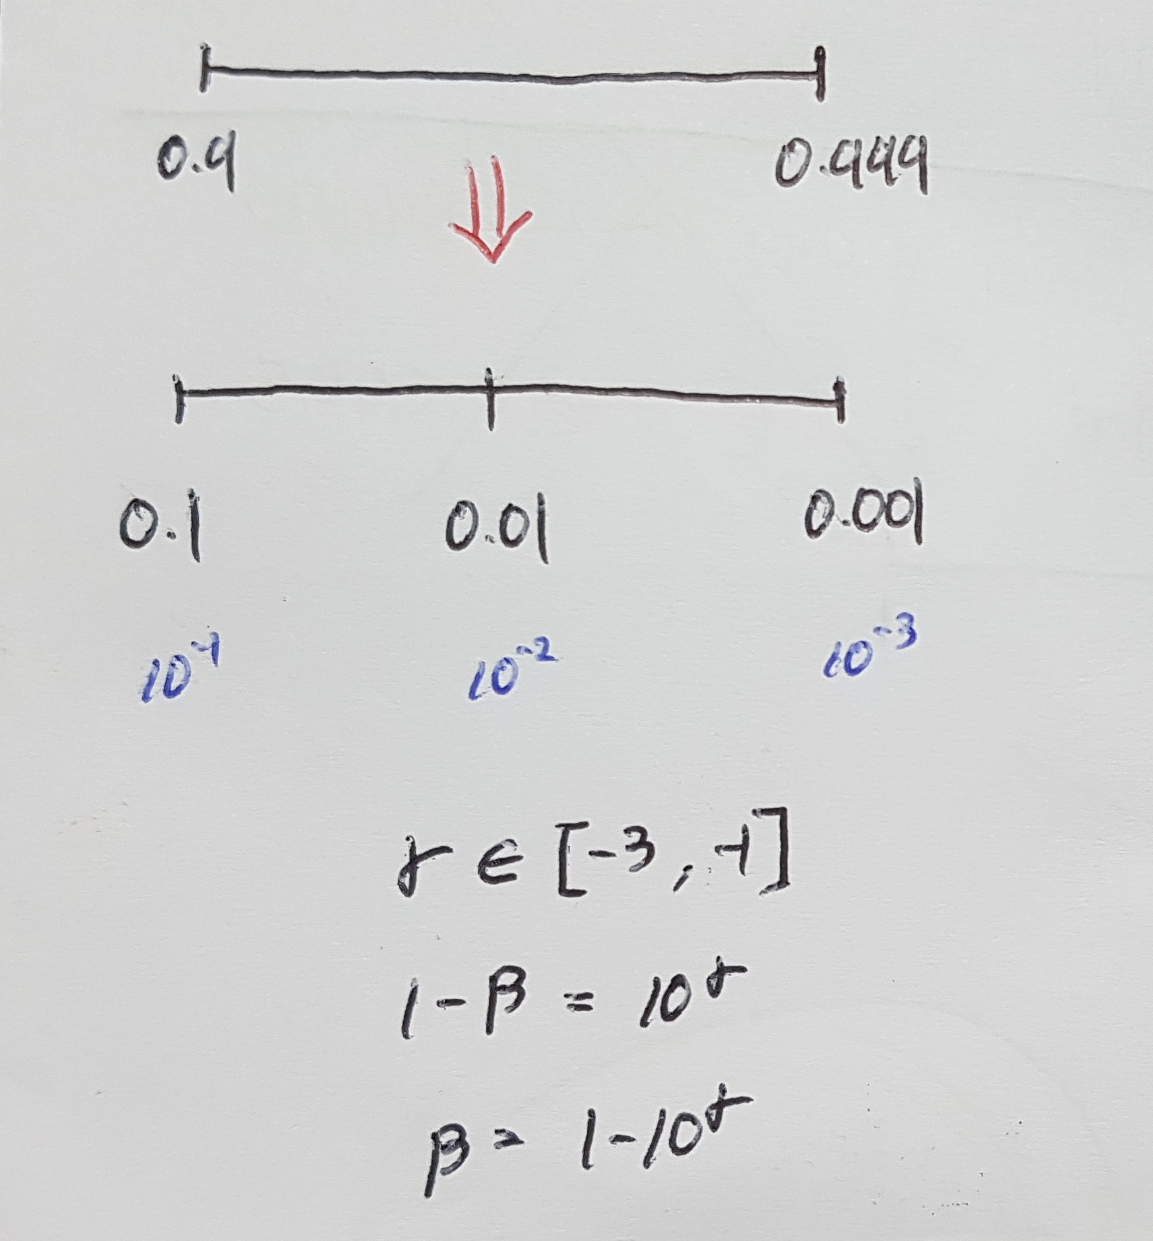 0.9 0.999
0.1 0.01 0.001
10⁻¹ 10⁻² 10⁻³
r ∈ [-3, -1]
1-β = 10ʳ
β = 1-10ʳ